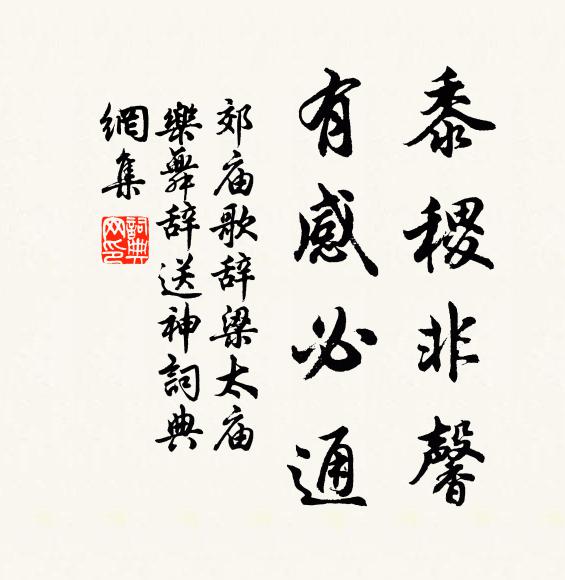 黍稷非馨
有感必通
郊庙歌辞梁太庙
樂舞辞送神詞典
網集
詞典网印